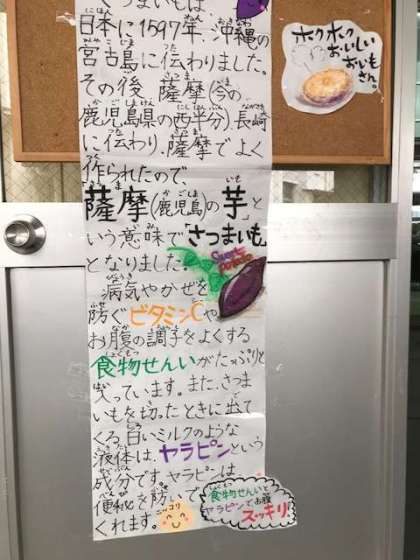 さつまいもは、
日本に1597年、沖縄の
宮古島に伝わりました。
その後、薩摩(今の
鹿児島県の西半分)、長崎
に伝わり、薩摩でよく
作られたので、
薩摩(鹿児島)の芋」と
いう意味で「さつまいも」
となりました。
Sweet
Potato
病気やかぜを
防ぐビタミンCや
お腹の調子をよくする
食物せんいがたっぷりと
入っています。また、さつま
いもを切ったときに出て
くる白いミルクのような
液体は、ヤラピンという
成分です。ヤラピンは
便秘を防いで
くれます。
ニッコリ
食物せんいと
ヤラピンでお腹
スッキリ!
ホクホク
おいしい
おいも
さん。